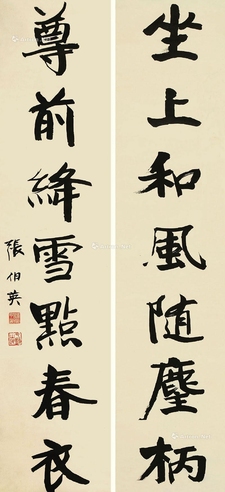 坐上和風随麈柄
尊前絳雪點春衣
張伯英